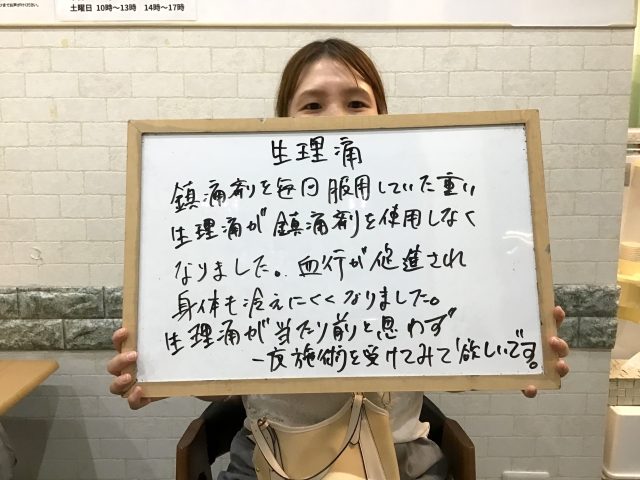 土曜日 10時〜13時 14時〜17時
生理痛
鎮痛剤を毎日服用していた重い
生理痛が鎮痛剤を使用しなく
なりました。血行が促進され
身体も冷えにくくなりました。
生理痛が当たり前と思わず
一度施術を受けてみて欲しいです。